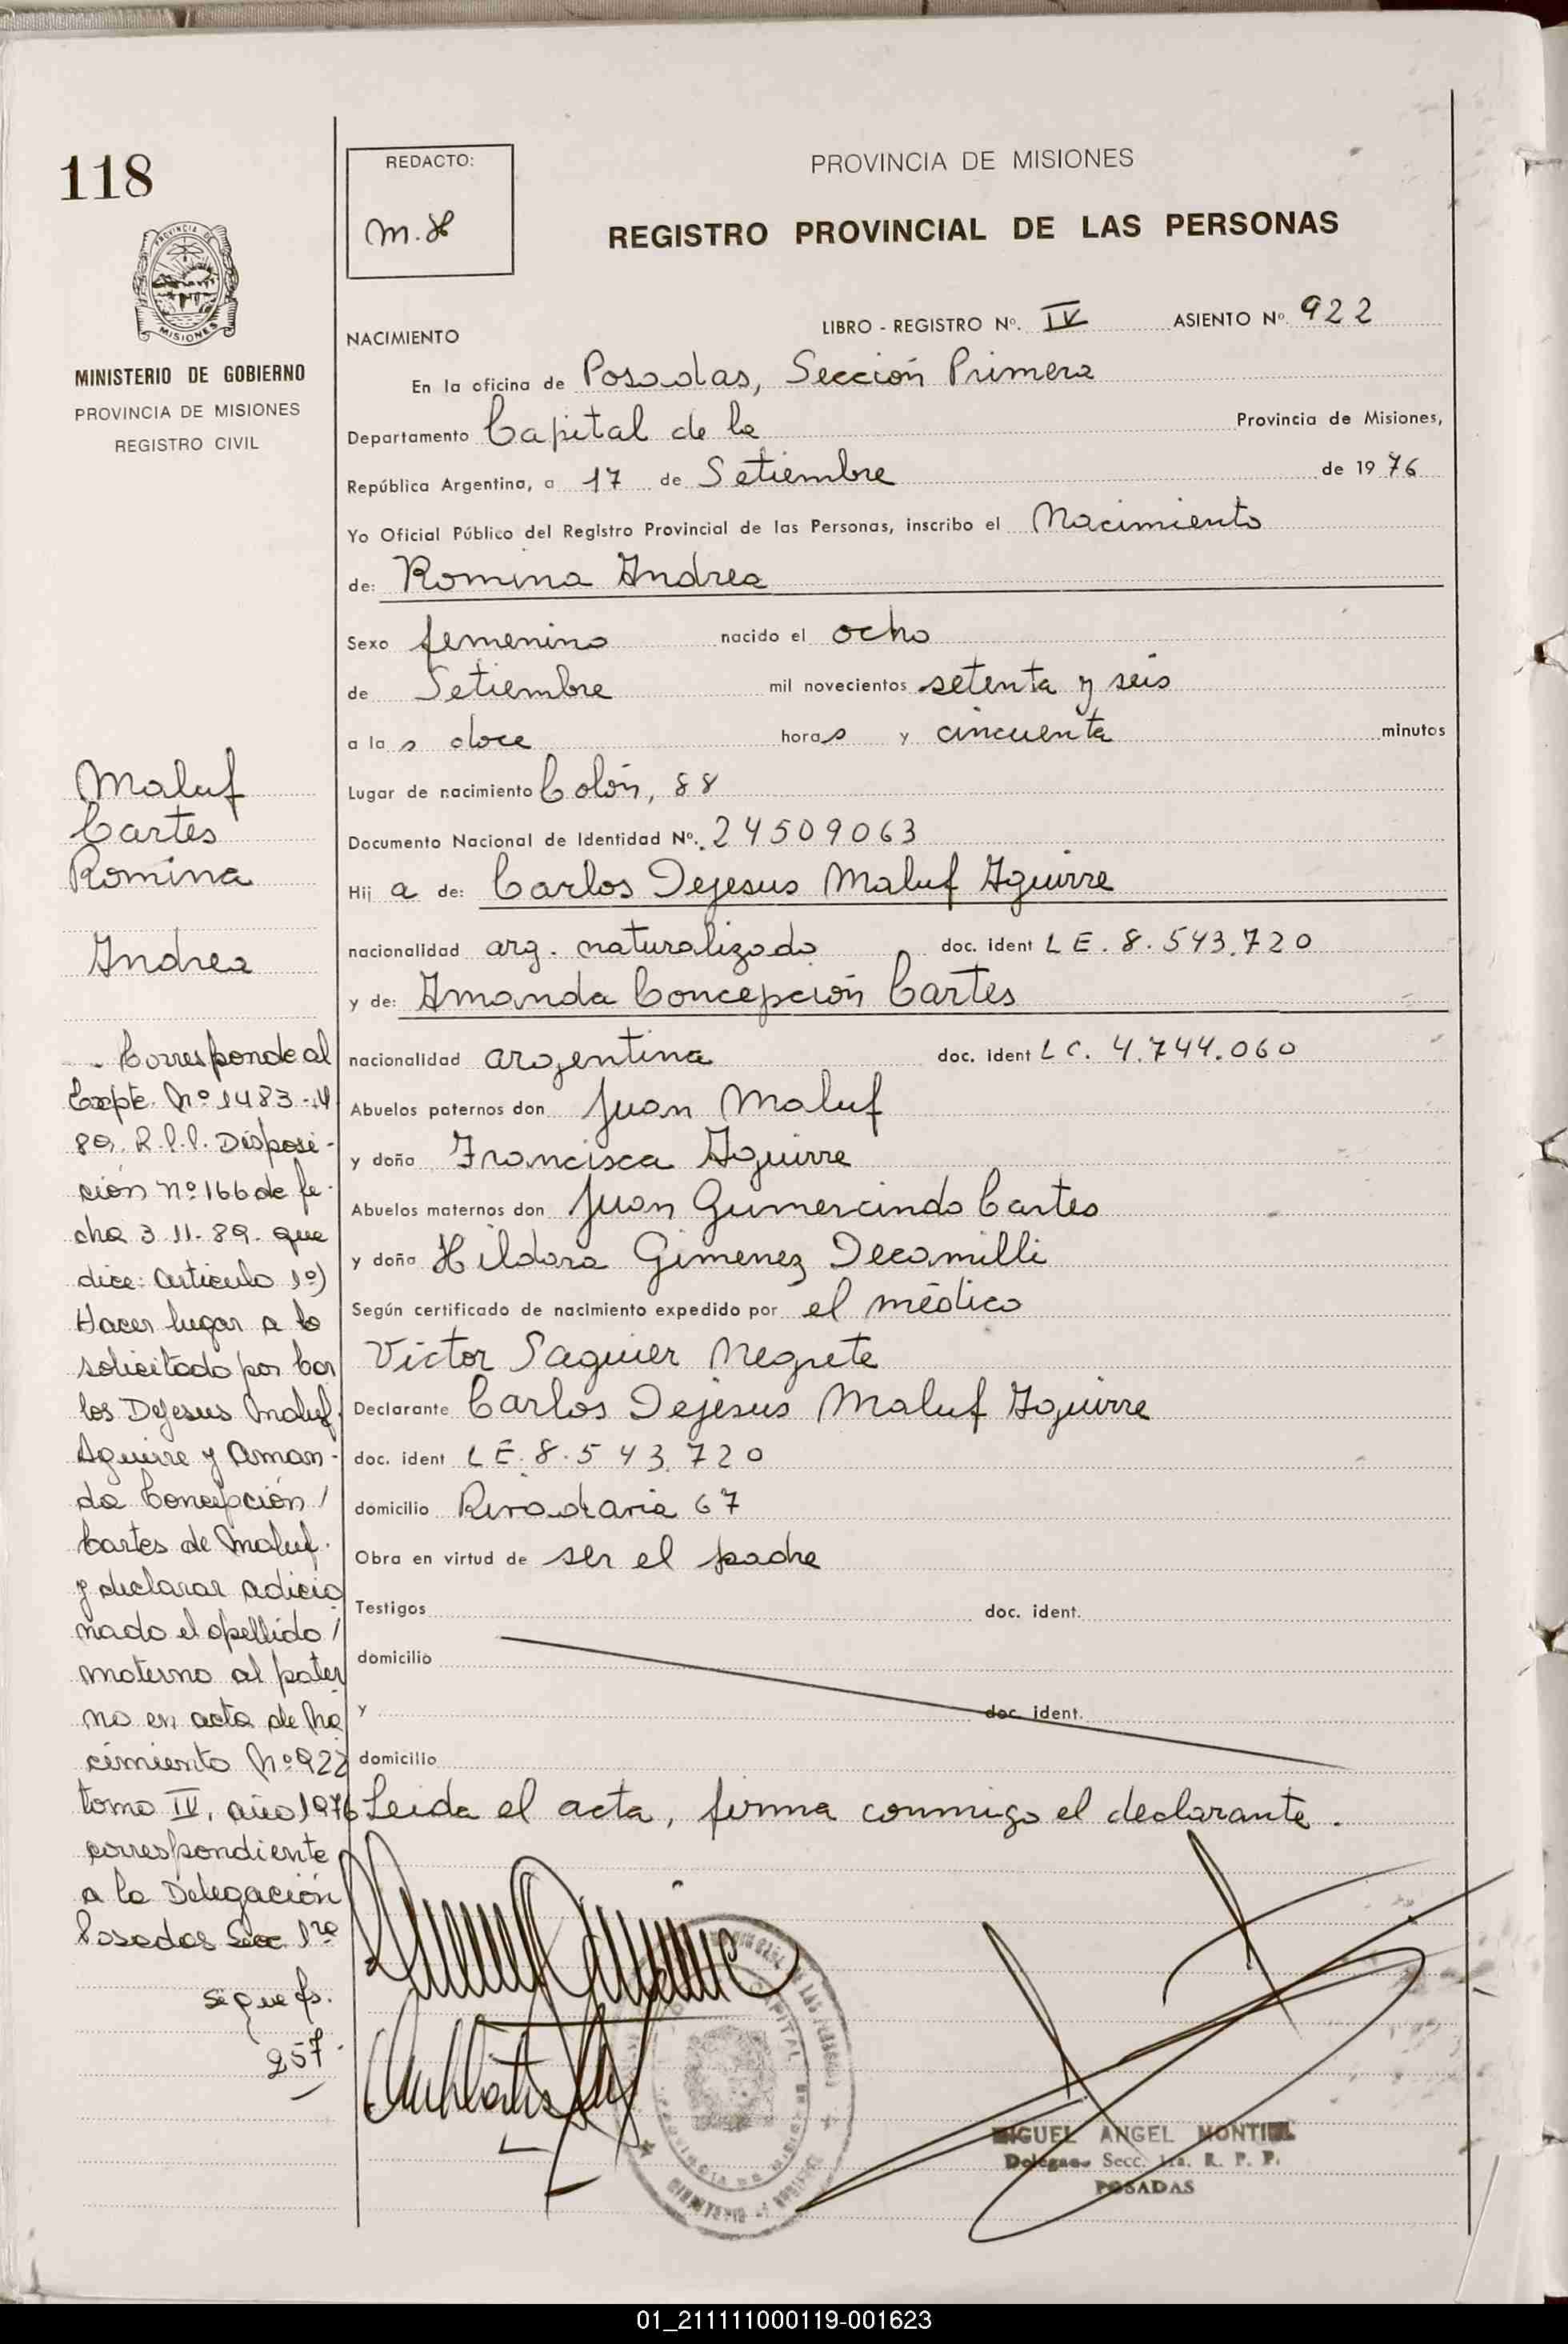 118
REDACTO:
M. H
PROVINCIA DE MISIONES
REGISTRO PROVINCIAL DE LAS PERSONAS
PROVINCIA DE
MISIONES
MINISTERIO DE GOBIERNO
PROVINCIA DE MISIONES
REGISTRO CIVIL
NACIMIENTO
LIBRO - REGISTRO Nº. IV ASIENTO Nº 922
En la oficina de Posadas, Sección Primera
Departamento Capital de la Provincia de Misiones,
República Argentina, a 17 de Setiembre de 1976
Yo Oficial Público del Registro Provincial de las Personas, inscribo el Nacimiento
de: Romina Andrea
Sexo femenino nacido el ocho
de Setiembre mil novecientos setenta y seis
a las doce horas y cincuenta minutos
Lugar de nacimiento Colón, 88
Documento Nacional de Identidad Nº. 24509063
Hija de: Carlos Dejesus Maluf Aguirre
nacionalidad arg. naturalizado doc. ident LE. 8.543.720
y de: Amanda Concepción Cartes
nacionalidad argentina doc. ident LC. 4.744.060
Abuelos paternos don Juan Maluf
y doña Francisca Aguirre
Abuelos maternos don Juan Gumercindo Cartes
y doña Hildara Gimenez Decamilli
Según certificado de nacimiento expedido por el médico
Victor Saguier Negrete
Declarante Carlos Dejesus Maluf Aguirre
doc. ident LE. 8.543.720
domicilio Rivadavia 67
Obra en virtud de ser el padre
Testigos doc. ident.
domicilio
y doc. ident.
domicilio
Leida el acta, firma conmigo el declarante.
Maluf
Cartes
Romina
Andrea
. Corresponde al
Expte. Nº 1483-M
89. R.P.P. Disposi-
ción nº 166 de fe-
cha 3.11.89. que
dice: Artículo 1º)
Hacer lugar a lo
solicitado por Car
los Dejesus Maluf
Aguirre y Aman-
da Concepción /
Cartes de Maluf.
y declarar adicio
nado el apellido /
materno al pater
no en acta de Na
cimiento Nº 922
tomo IV, año 1976
correspondiente
a la Delegación
Posadas Secc 1ra
sigue fs.
257.
MIGUEL ANGEL MONTIEL
Delegado Secc. 1ra. R. P. P.
POSADAS
01_211111000119-001623